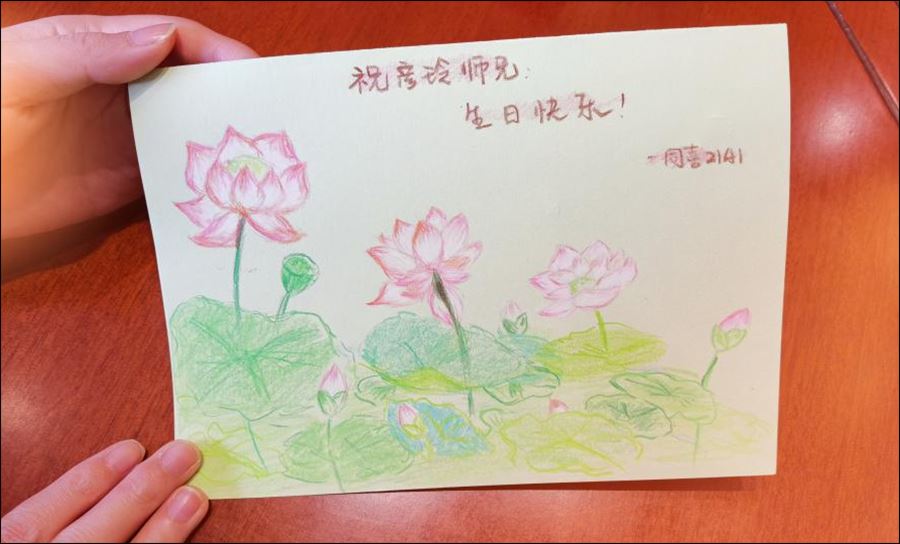 祝彦玲师兄:
生日快乐!
-同喜2141